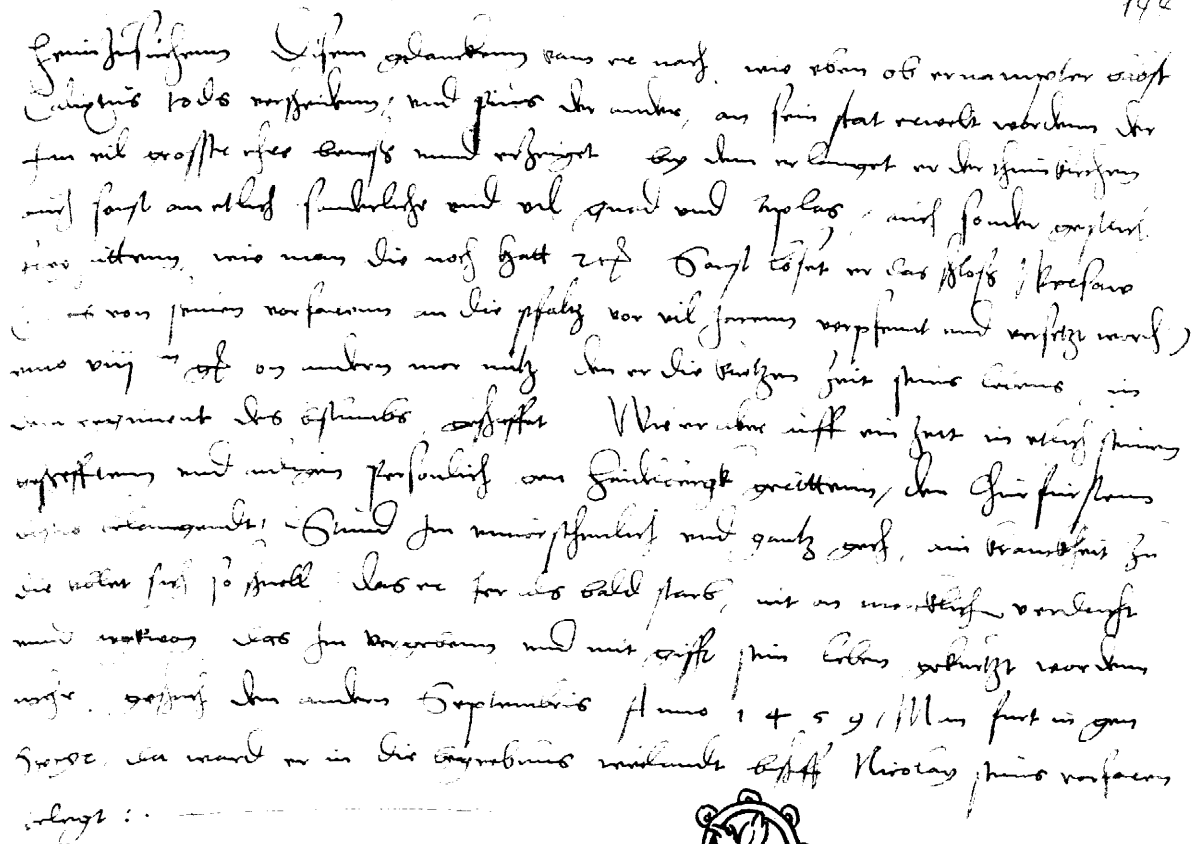 heimzusuchenn Disem gedanckenn kam er nach, wie eben ob ernampter bobst
Calixtus tods verscheidenn, vnd Pius der ander, an sein stat erwelt wordenn der
Im vil grosser ehre bewyß vnnd erzeiget by dem erlanget er der thumkirchen
auch sonst an etlich sonderliche vnd vil gnad vnd applas, auch sonder gepluch
wie man die noch hatt Sonst loset er das schloß
von seinen vorfarenn an die pfaltz vor vil jarenn verpfennt vnd versetzt word
vmb viij m gl on andern mer nutz den er die kurtzen zeit seins lebens, in
dem regiment des bstumbs, geschaffet Wie er aber vff ein zeit in etlich seinen
geschefftenn vnd aigen Personlich gen Heidelbergk gerittenn, den Churfurstenn
belangendt, Stund Im vnuersehenlich vnd gantz gech, ain kranckheit zu
die vollet sich so schnell das er als bald starb, nit on mercklichen verdacht
vnnd das Im vergebenn vnd mit gifft sein leben gekurtzt wordenn
wehr, geschach den andern Septembris Anno 1459, Man furt in gen
Speyr, da ward er in die begrebnus weilandt bischoff Nicolay seins vorfaren
gelegt :.